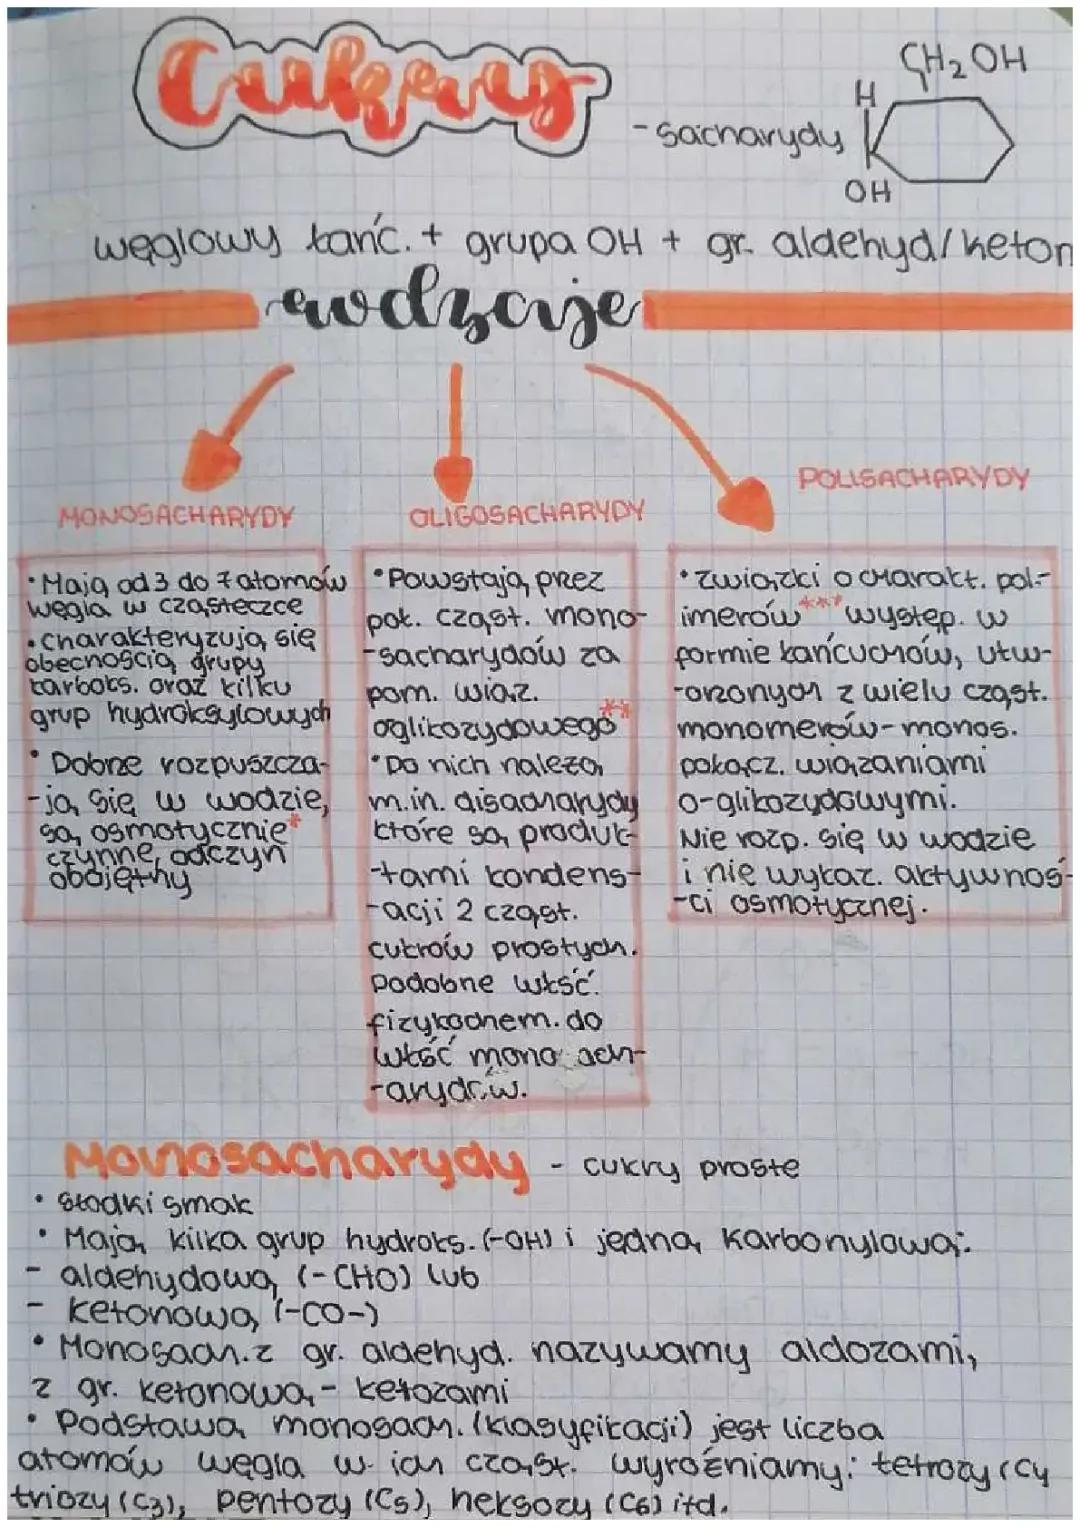 Cukry
CH₂OH
H
-sacharydy
OH
węglowy łańc. + grupa OH + gr. aldehyd/keton
rodzaje
MONOSACHARYDY
• Mają od 3 do 7 atomów
węgla w cząsteczce
• charakteryzują się
obecnością grupy
karboks. oraz kilku
grup hydroksylowych
• Dobrze rozpuszcza-
-ją się w wodzie,
są osmotycznie*
czynne, odczyn
obojętny
OLIGOSACHARYDY
• Powstają prez
poł. cząst. mono-
-sacharydów za
pom. wiąz.
oglikozydowego**
• Do nich należą
m.in. disacharydy
które są produk-
-tami kondens-
-acji 2 cząst.
cukrów prostych.
Podobne włść.
fizykochem. do
włść mono sach-
-arydów.
POLISACHARYDY
• związki o charakt. pol-
imerów*** występ. w
formie łańcuchów, utw-
-orzonych z wielu cząst.
monomerów-monos.
połącz. wiązaniami
o-glikozydowymi.
Nie rozp. się w wodzie
i nie wykaz. aktywnoś-
-ci osmotycznej.
Monosacharydy - cukry proste
• słodki smak
• Mają kilka grup hydroks. (-OH) i jedną karbonylową:
- aldehydową (-CHO) lub
- ketonową (-CO-)
• Monosach. z gr. aldehyd. nazywamy aldozami,
z gr. ketonową - ketozami
• Podstawą monosach. (klasyfikacji) jest liczba
atomów węgla w ich cząst. wyróżniamy: tetrozy (C4
triozy (C3), pentozy (C5), heksozy (C6) itd.